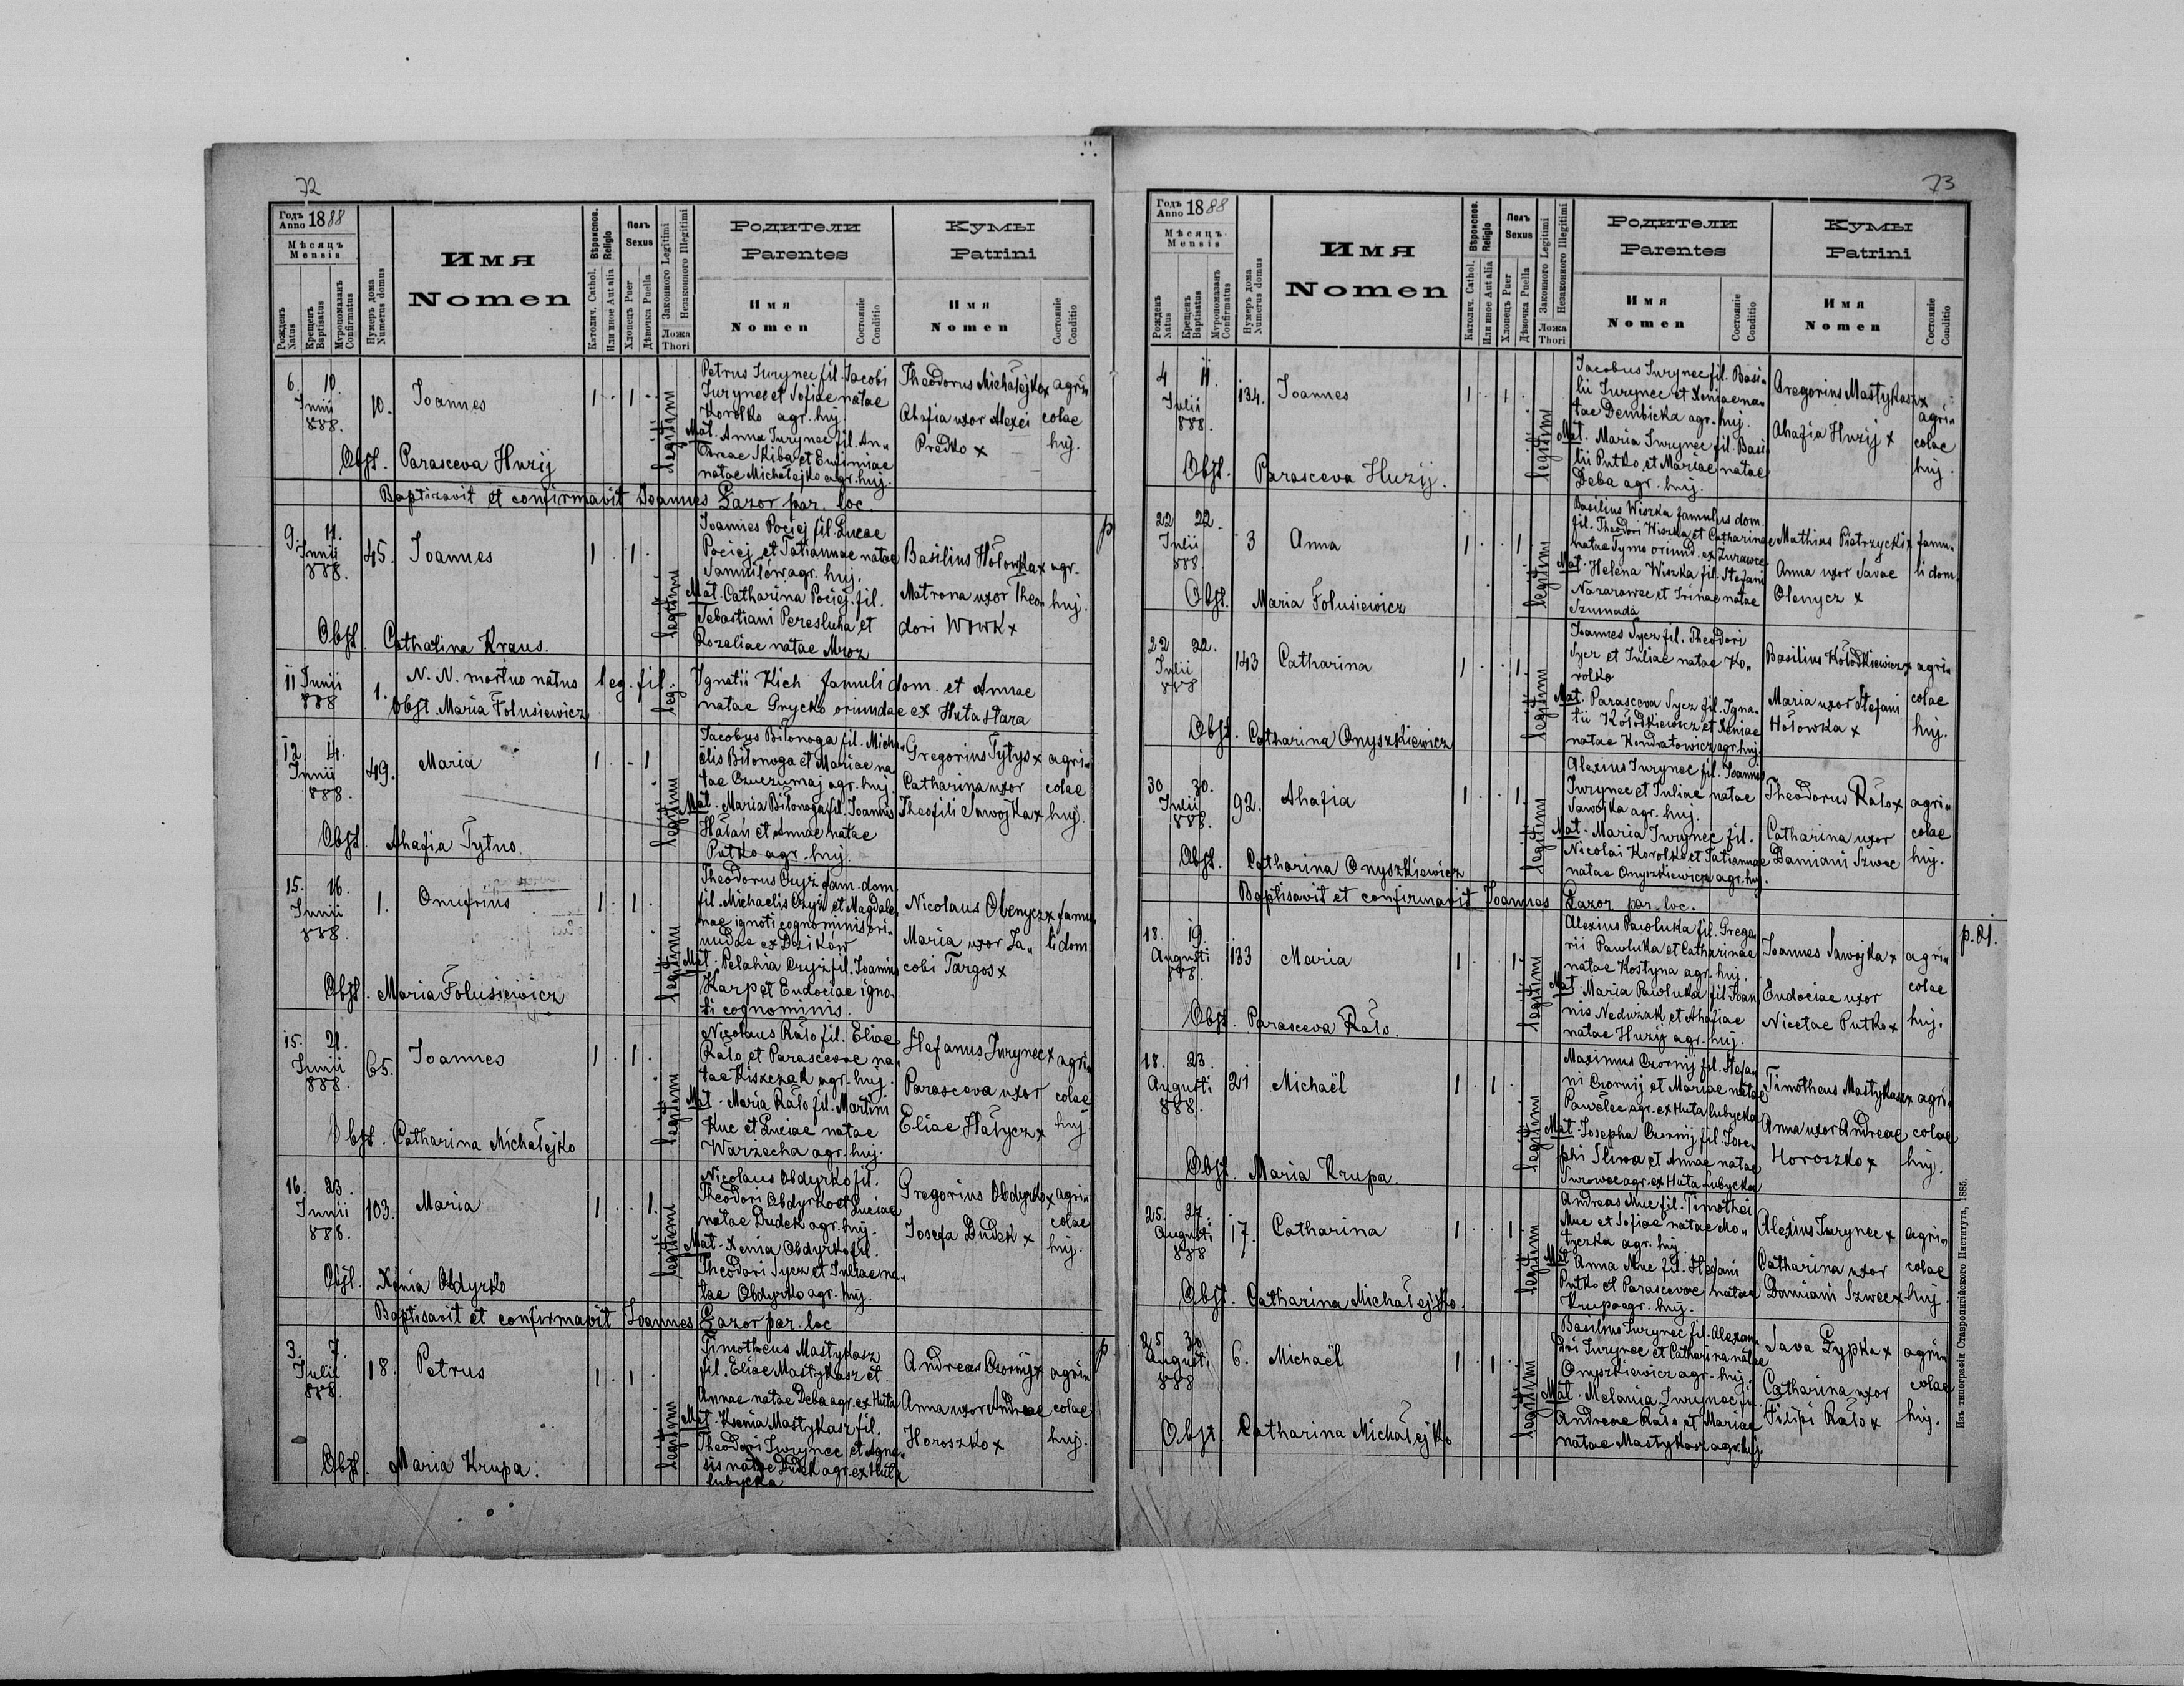 72
Годъ
Anno 1888
Мѣсяцъ
Mensis
Рожденъ
Natus
Крещенъ
Baptisatus
Мѵропомазанъ
Confirmatus
Нумеръ дома
Numerus domus
Имя
Nomen
Вѣроиспов.
Religio
Католич. Cathol.
Или иное Aut alia
Полъ
Sexus
Хлопецъ Puer
Дѣвочка Puella
Законного Legitimi
Незаконного Illegitimi
Ложа
Thori
Родители
Parentes
Имя
Nomen
Состояніе
Conditio
Кумы
Patrini
Имя
Nomen
Состояніе
Conditio
6. 10.
Junii
888.
10.
Joannes
1 . 1 .
legitimi
Petrus Jurynec fil. Jacobi
Jurynec et Sofiae natae
Korolko agr. huj.
Mat. Anna Jurynec fil. An„
dreae Skiba et Eufimiae
natae Michałejko agr. huj.
Theodorus Michałejko x agri„
Ahafia uxor Alexei colae
Predko x huj.
Obst. Parasceva Huzij
Baptizavit et confirmavit Joannes Łazor par. loc.
9. 11.
Junii
888.
45.
Joannes
1 . 1 .
legitimi
Joannes Pociej fil. Lucae
Pociej et Tatiannae natae
Samuilów agr. huj.
Mat. Catharina Pociej fil.
Sebastiani Peresluha et
Rozaliae natae Mroz
Basilius Hołowka x agr.
Matrona uxor Theo„ huj.
dori Wowk x
p
Obst. Catharina Kraus.
11 Junii
888
1.
N. N. mortuo natus leg. fil. leg. Ignatii Kich famuli dom. et Annae
Obst. Maria Folusiewicz natae Grycko oriundae ex Huta stara
12. 14.
Junii
888.
49.
Maria
1 . - 1
legitimi
Jacobus Biłonoga fil. Micha„
elis Biłonoga et Mariae na„
tae Czuczumaj agr. huj.
Mat. Maria Biłonoga fil. Joannis
Hałan et Annae natae
Putko agr. huj.
Gregorius Tytys x agri„
Catharina uxor colae
Theofili Sawojka x huj.
Obst. Ahafia Tytus
15. 16.
Junii
888.
1.
Onufrius
1 . 1 .
legitimi
Theodorus Czyż fam. dom.
fil. Michaelis Czyż et Magdale„
nae ignoti cognominis ori„
undae ex Dzików
Mat. Pelahia Czyż fil. Joannis
Karp et Eudociae igno„
ti cognominis.
Nicolaus Obenycz x famu„
Maria uxor Ja„ li dom.
cobi Targos x
Obst. Maria Folusiewicz
15. 21.
Junii
888.
65.
Joannes
1 . 1 .
legitimi
Nicolaus Rało fil. Eliae
Rało et Parascevae na„
tae Kiszczak agr. huj.
Mat. Maria Rało fil. Martini
Kuc et Luciae natae
Warzecha agr. huj.
Stefanus Jurynec x agri„
Parasceva uxor colae
Eliae Hałycz x huj
Obst. Catharina Michałejko
16. 23.
Junii
888.
103.
Maria
1 . . 1.
legitimi
Nicolaus Obdyrko fil.
Theodori Obdyrko et Luciae
natae Dudek agr. huj.
Mat. Xenia Obdyrko fil.
Theodori Sycz et Juliae na„
tae Obdyrko agr. huj.
Gregorius Obdyrko x agri„
colae
Josefa Dudek x huj.
Obst. Xenia Obdyrko
Baptisavit et confirmavit Joannes Łazor par. loc
3. 7.
Julii
888.
18.
Petrus
1 . 1 .
legitimi
Timotheus Mastykasz
fil. Eliae Mastykasz et
Annae natae Deba agr. ex Huta
Mat. Ksenia Mastykasz fil.
Theodori Jurynec et Agne„
sis natae Dudek agr. ex Huta
lubycka
Andreas Czornij x agri„
Anna uxor Andreae colae
Horoszko x huj.
p
Obst. Maria Krupa.
73
Годъ
Anno 1888
Мѣсяцъ
Mensis
Рожденъ
Natus
Крещенъ
Baptisatus
Мѵропомазанъ
Confirmatus
Нумеръ дома
Numerus domus
Имя
Nomen
Вѣроиспов.
Religio
Католич. Cathol.
Или иное Aut alia
Полъ
Sexus
Хлопецъ Puer
Дѣвочка Puella
Законного Legitimi
Незаконного Illegitimi
Ложа
Thori
Родители
Parentes
Имя
Nomen
Состояніе
Conditio
Кумы
Patrini
Имя
Nomen
Состояніе
Conditio
4 11.
Julii
888.
134.
Joannes
1 . 1 .
legitimi
Jacobus Jurynec fil. Basi„
lii Jurynec et Xeniae na„
tae Dembicka agr. huj.
Mat. Maria Jurynec fil. Basi„
lii Putko et Mariae natae
Deba agr. huj.
Gregorius Mastykasz x
agri„
Ahafia Huzij x colae
huj.
Obst. Parasceva Huzij.
22 22.
Julii
888.
3
Anna
1 . . 1.
legitimi
Basilius Wiszka famulus dom.
fil. Theodori Wiszka et Catharinae
natae Tyms oriund. ex Żurawce
Mat. Helena Wiszka fil. Stefani
Nazarowec et Irinae natae
Szumada
Mathias Pietrzycki x famu„
Anna uxor Savae li dom.
Olenycz x
Obst. Maria Folusiewicz
22 22.
Julii
888
143
Catharina
1 . . 1.
legitimi
Joannes Sycz fil. Theodori
Sycz et Juliae natae Ko„
rolko
Mat. Parasceva Sycz fil. Igna„
tii Kołodkiewicz et Xeniae
natae Kondratowicz agr. huj.
Basilius Kołodkiewicz x agri„
Maria uxor Stefani colae
Hołowka x huj.
Obst. Catharina Onyszkiewicz
30. 30.
Julii
888.
92.
Ahafia
1 . . 1.
legitimi
Alexius Jurynec fil. Joannis
Jurynec et Juliae natae
Sawojka agr. huj.
Mat. Maria Jurynec fil.
Nicolai Korolko et Tatiannae
natae Onyszkiewicz agr. huj.
Theodorus Rało x agri„
Catharina uxor colae
Damiani Szwec huj.
Obst. Catharina Onyszkiewicz
Baptisavit et confirmavit Joannes Łazor par. loc.
18. 19.
Augusti
888.
133
Maria
1 . . 1.
legitimi
Alexius Pawluka fil. Grego„
rii Pawluka et Catharinae
natae Kostyna agr. huj.
Mat. Maria Pawluka fil. Joan„
nis Nedwzak et Ahafiae
natae Huzij agr. huj.
Joannes Sawojka x agri„
colae
Eudociae uxor
Nicetae Putko x huj.
Obst. Parasceva Rało.
18. 23.
Augusti
888.
21
Michaël
1 . 1 .
legitimi
Maximus Czornij fil. Stefa„
ni Czornij et Mariae natae
Pawelec agr. ex Huta lubycka
Mat. Josepha Czornij fil. Jose„
phi Sliwa et Annae natae
Surowec agr. ex Huta lubycka
Timotheus Mastykasz x agri„
Anna uxor Andreae colae
Horoszko x huj.
Obst. Maria Krupa
25. 27.
Augusti
888
17.
Catharina
1 . . 1.
legitimi
Andreas Muc fil. Timothei
Muc et Sofiae natae Mo„
tyczka agr. huj.
Mat. Anna Muc fil. Stefani
Putko et Parascevae natae
Krupa agr. huj.
Alexius Jurynec x agri„
Catharina uxor colae
Damiani Szwec x huj
Obst. Catharina Michałejko.
25. 30
Augusti
888
6.
Michaël
1 . 1 .
legitimi
Basilius Jurynec fil. Alexan„
dri Jurynec et Catharina natae
Onyszkiewicz agr. huj.
Mat. Melania Jurynec fil.
Andreae Rało et Mariae
natae Mastykasz agr. huj.
Sava Łypka x agri„
Catharina uxor colae
Filipi Rało x huj.
Obst. Catharina Michałejko
Изъ типографіи Ставропигійского Института, 1885.